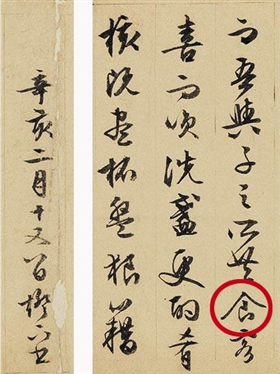 而吾與子之所共食客
喜而咲洗盞更酌肴
核既盡杯盤狼籍
辛亥二月十又